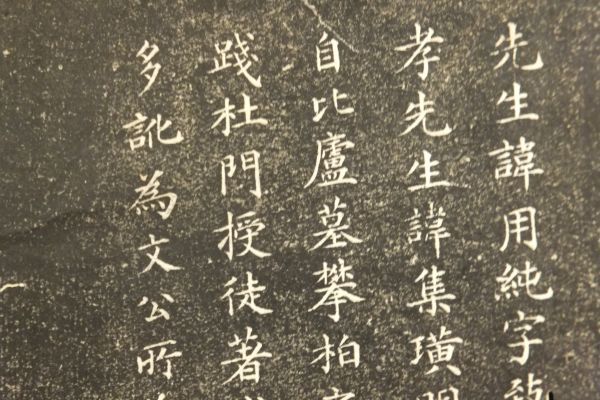 先生諱用純字
孝先生諱集璜
自比廬墓攀柏
踐杜門授徒著
多訛為文公所